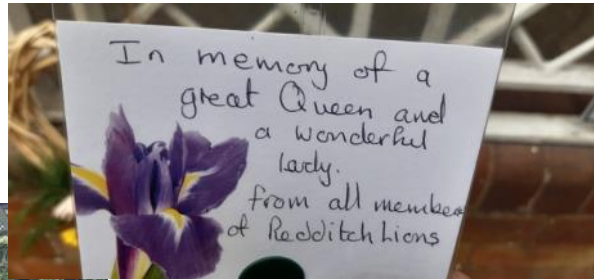 In memory of a
great Queen and
a wonderful
lady.
from all members
of Redditch Lions